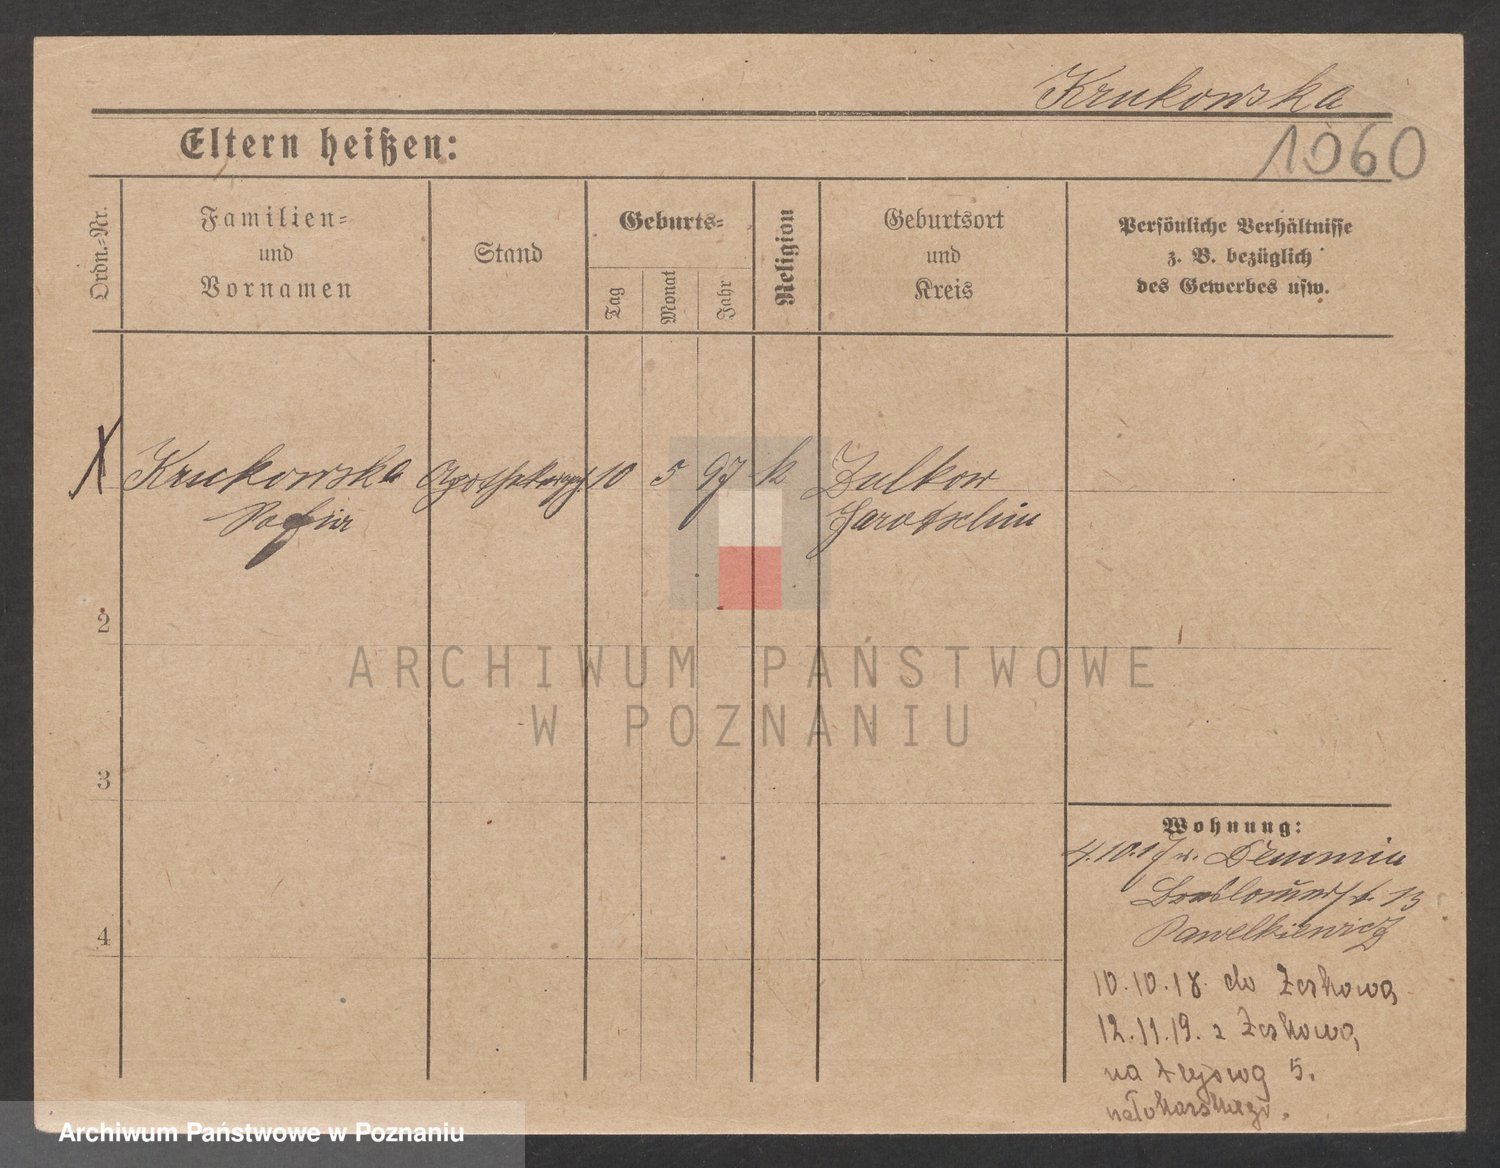 Krukowska
1060
Eltern heißen:
Ordn.-Nr.
Familien-
und
Vornamen
Stand
Geburts-
Tag
Monat
Jahr
Religion
Geburtsort
und
Kreis
Persönliche Verhältnisse
z. B. bezüglich
des Gewerbes usw.
Krukowska 10 5 97 k Zulkow
Sofia Jarotschin
2
3
4
Wohnung:
4.10.17 v. Demmin
Breslauerst. 13
Pawelkiewicz
10.10.18. do
12.11.19. z
na 5.
ARCHIWUM PAŃSTWOWE
W POZNANIU
Archiwum Państwowe w Poznaniu